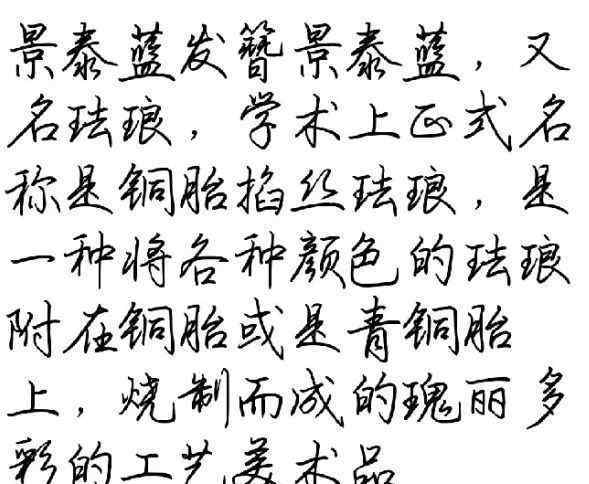 景泰蓝发簪景泰蓝，又
名珐琅，学术上正式名
称是铜胎掐丝珐琅，是
一种将各种颜色的珐琅
附在铜胎或是青铜胎
上，烧制而成的瑰丽多
彩的工艺美术品